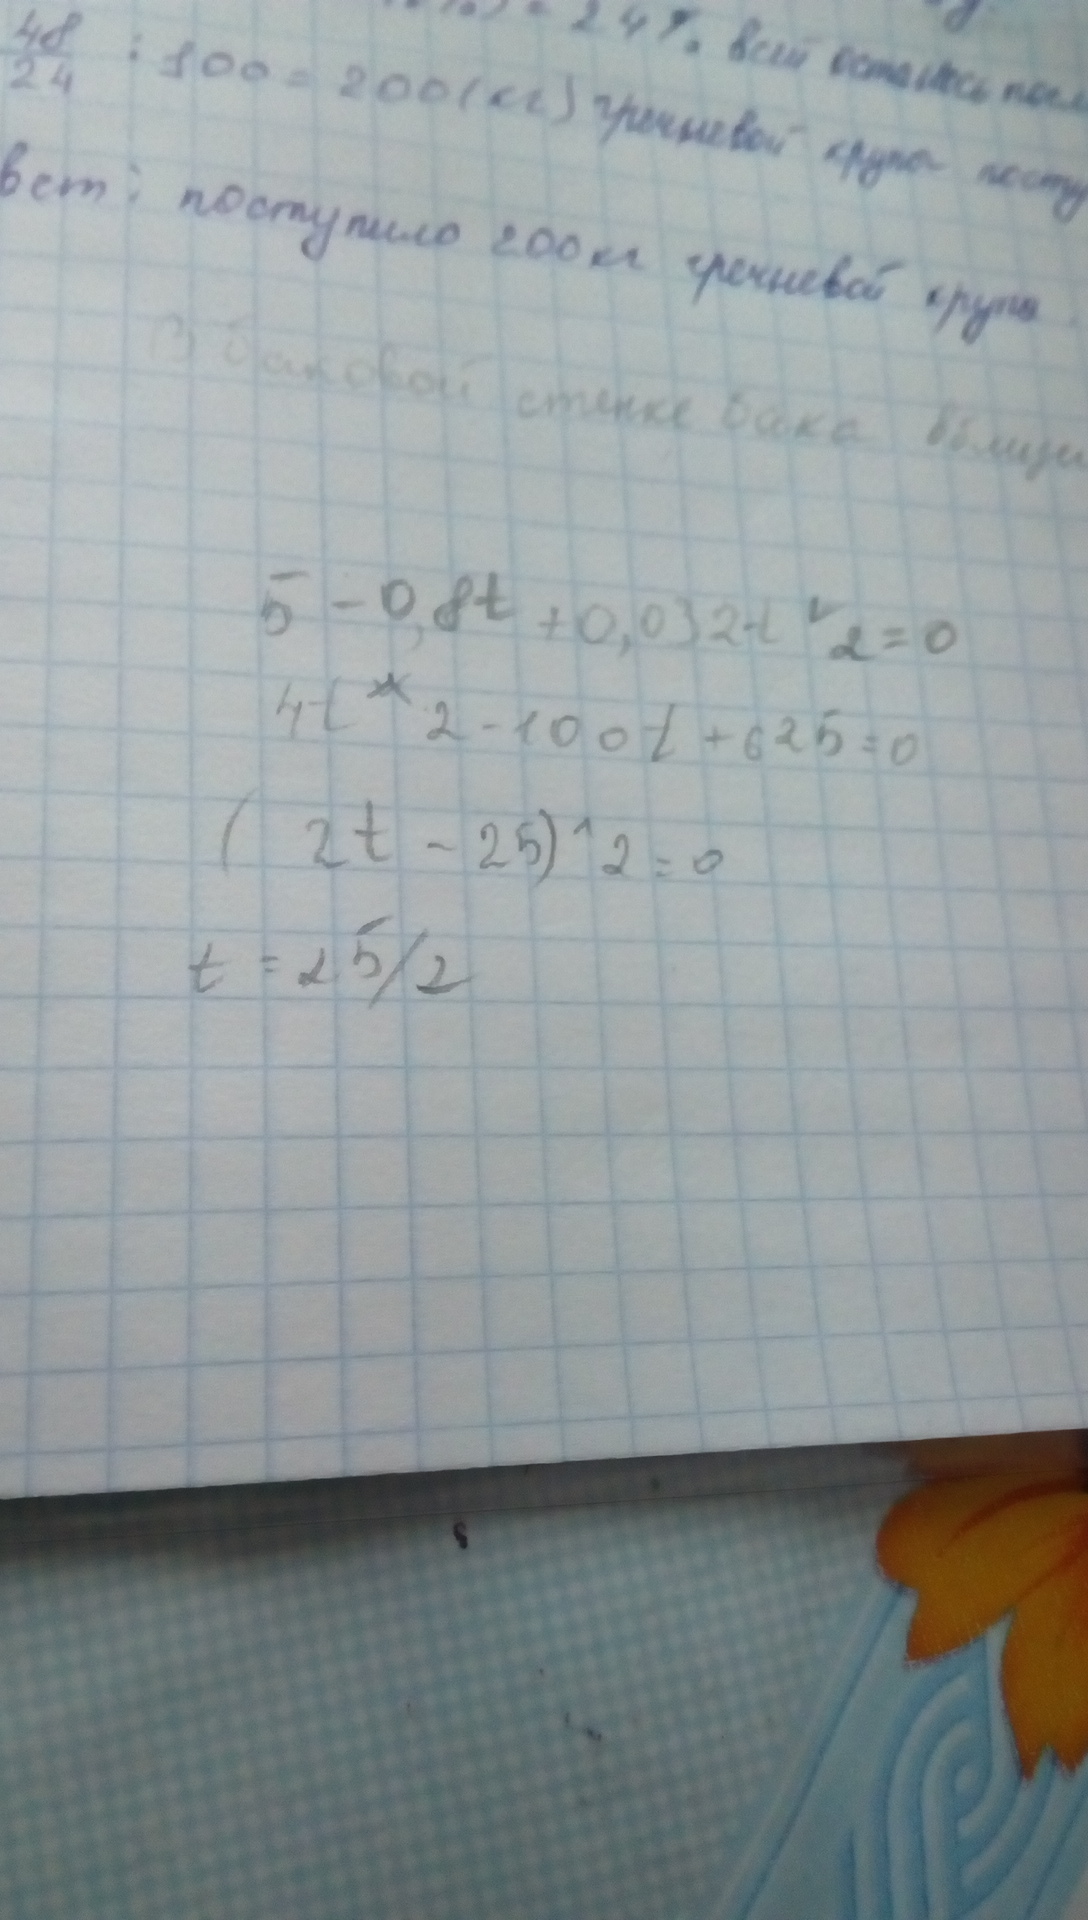 24% всей осталось
48/24 : 100 = 200 (кг) гречневой крупы посту
вет: поступило 200 кг гречневой крупы.
В баковой стенке бака
5 - 0,8t + 0,032t ^ 2 = 0
4t ^ 2 - 100t + 625 = 0
( 2t - 25) ^ 2 = 0
t = 25/2